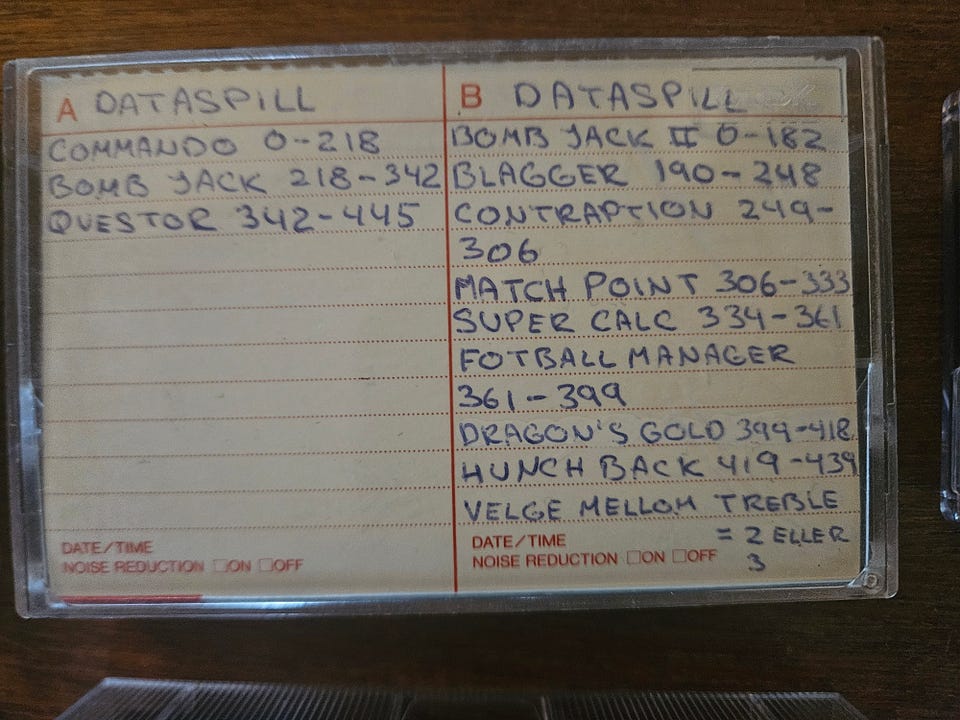 A DATASPILL
COMMANDO 0-218
BOMB JACK 218-342
QUESTOR 342-445
DATE/TIME
NOISE REDUCTION □ON □OFF
B DATASPILL
BOMB JACK II 0-182
BLAGGER 190-248
CONTRAPTION 249-
306
MATCH POINT 306-333
SUPER CALC 334-361
FOTBALL MANAGER
361-399
DRAGON'S GOLD 399-418
HUNCH BACK 419-439
VELGE MELLOM TREBLE
= 2 ELLER
3
DATE/TIME
NOISE REDUCTION □ON □OFF